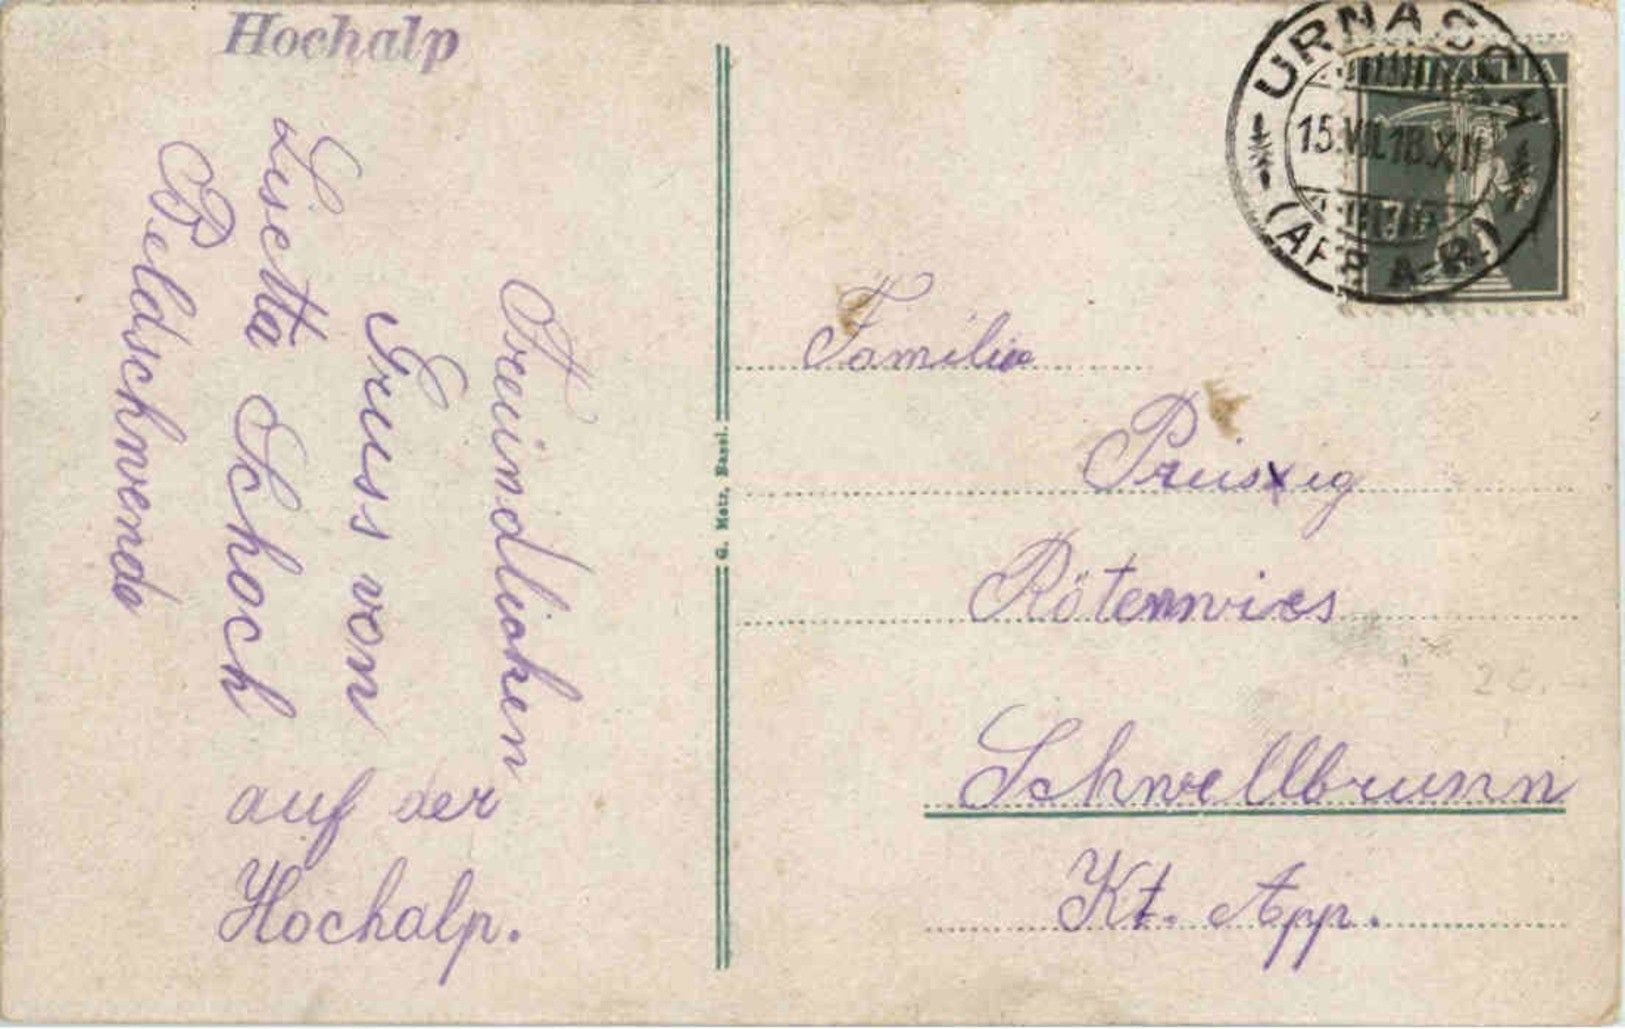 Hochalp
Freundlichen
Gruss von
Lisetta Schoch
Beldschwende
auf der
Hochalp.
G. Metz, Basel.
URNÄSCH
15.VII.18.XII
(APP. A-RH)
HELVETIA
Familie
Preisig
Rötenwies
Schwellbrunn
Kt. App.